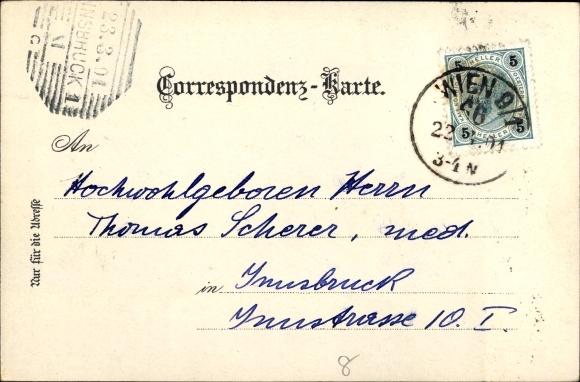 INNSBRUCK 1
23.3.01
Correspondenz-Karte.
5 HELLER 5
5 HELLER 5
WIEN 9/1
22
3-4 N
An
Hochwohlgeboren Herrn
Thomas Scherer, med.
in Innsbruck
Innstrasse 10. I
Nur für die Adresse
8